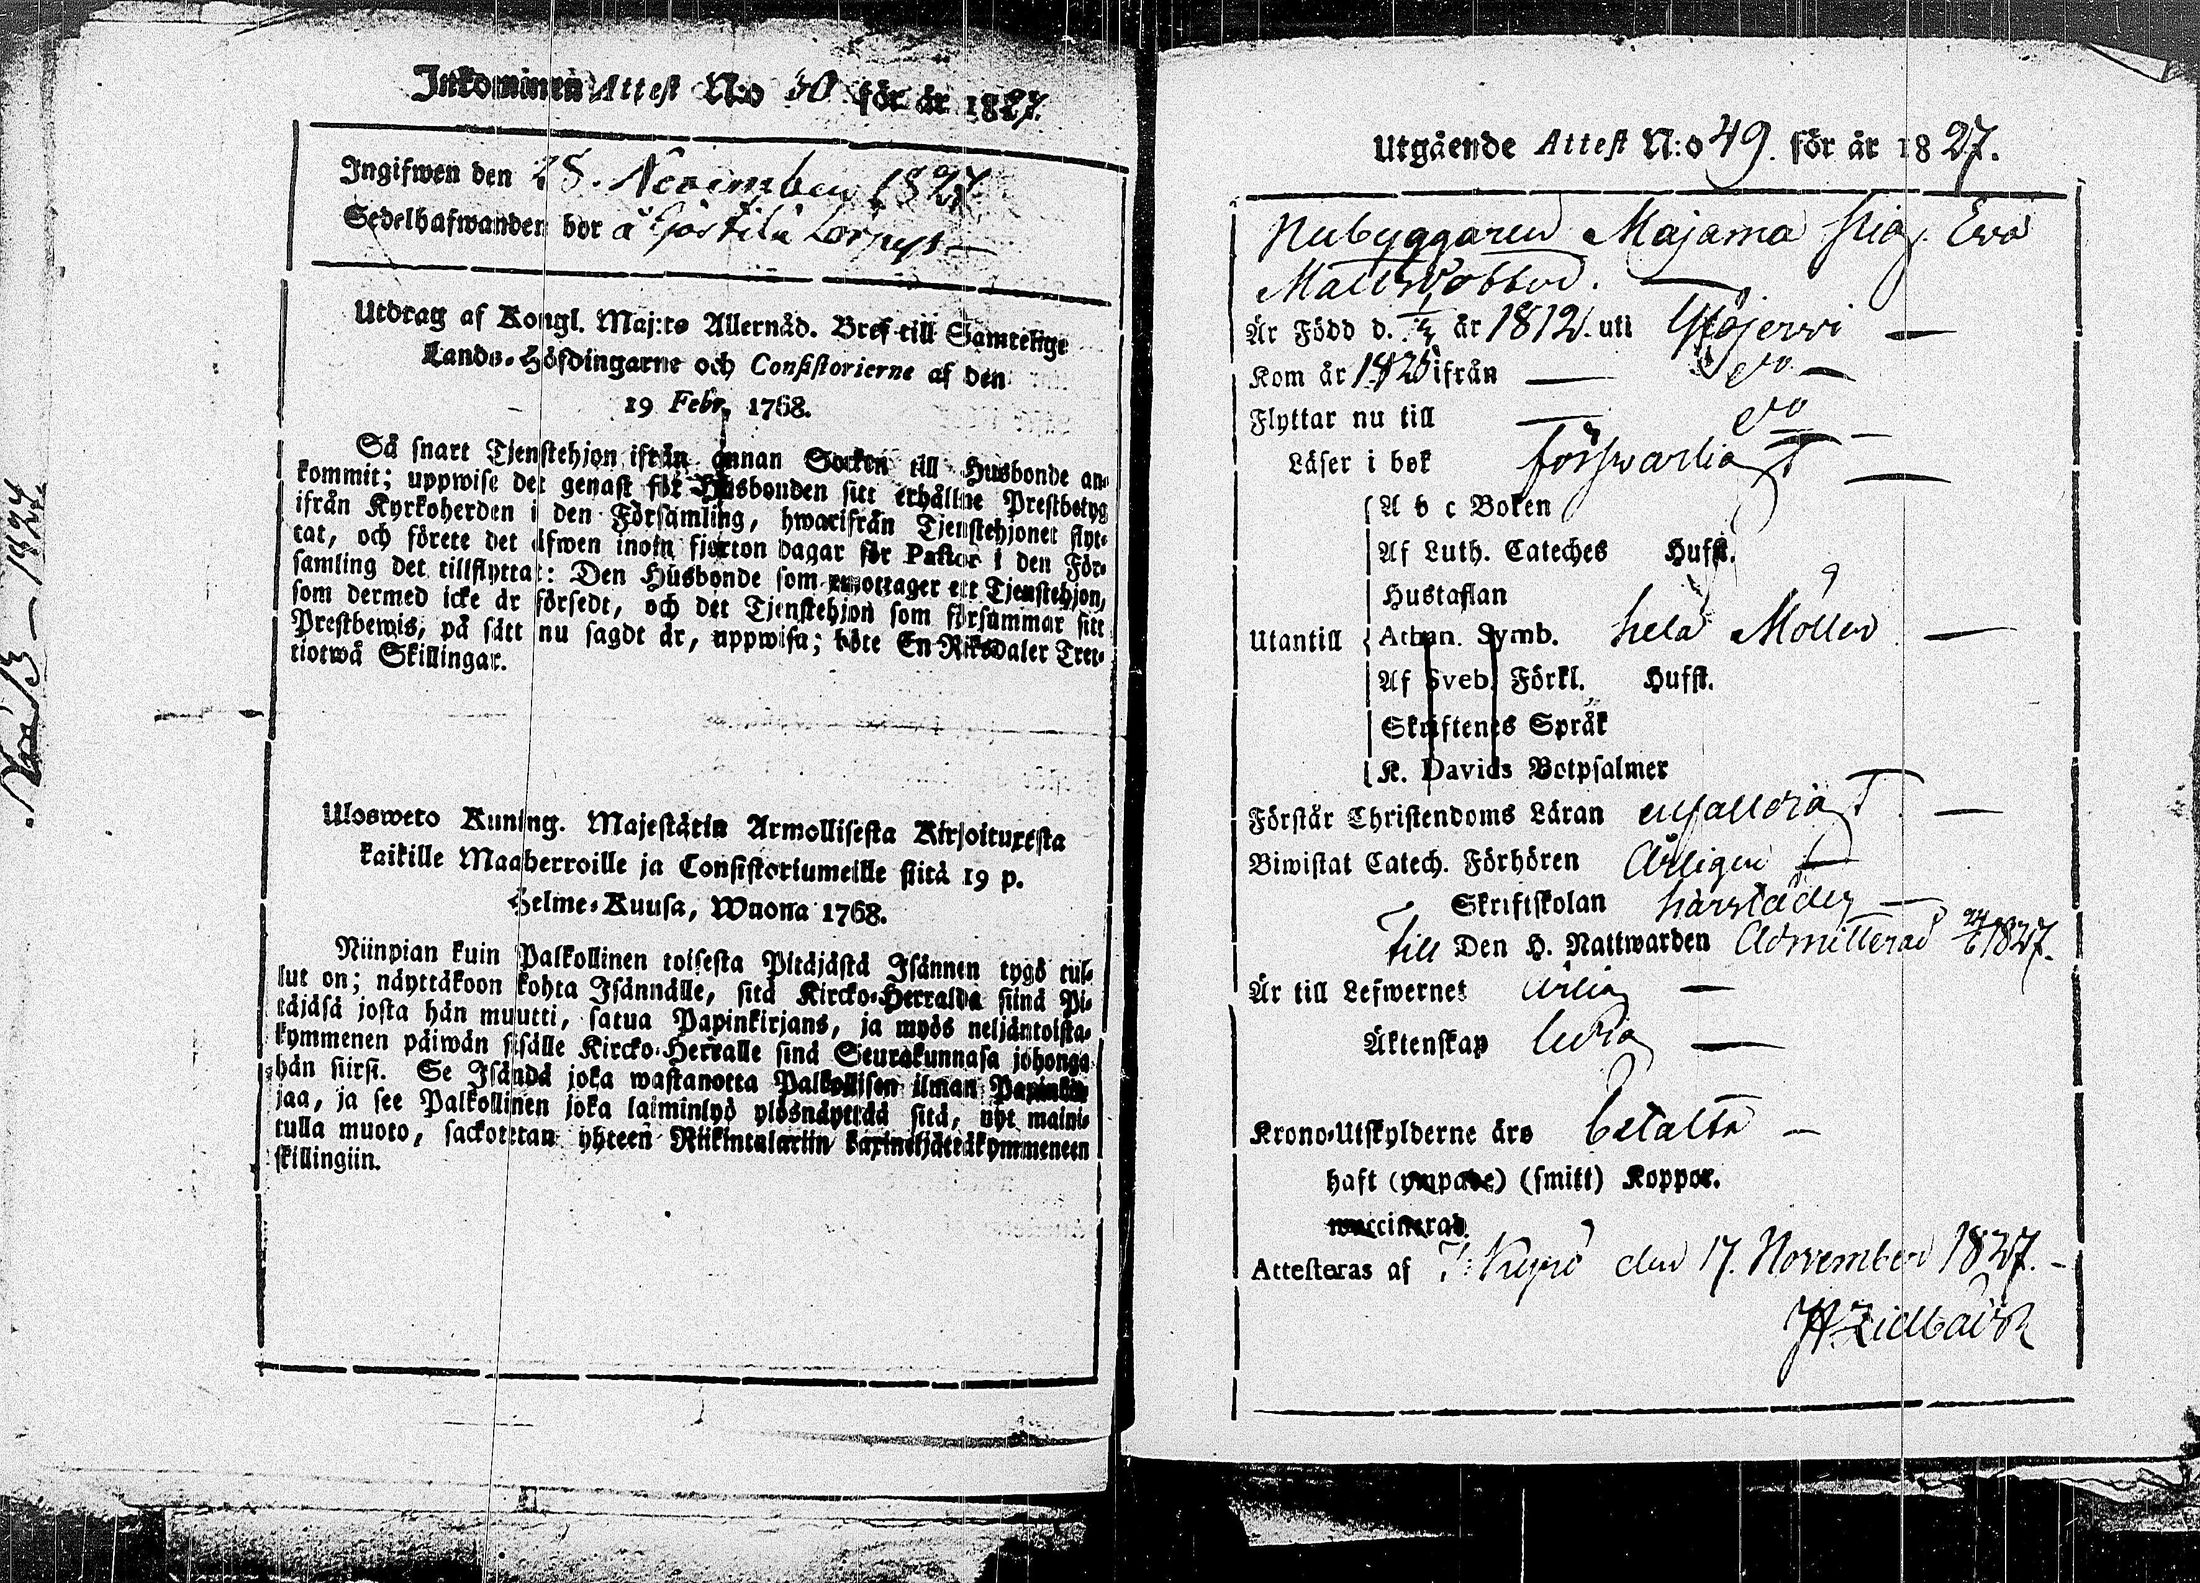 Inkommen Attest N:o 30 för år 1827.
Ingifwen den 28. November 1827
Sedelhafwanden bor å
Utdrag af Kongl. Maj:ts Allernåd. Bref till Samtelige
Lands-Höfdingarne och Consistorierne af den
19 Febr. 1768.
Så snart Tjenstehjon ifrån annan Socken till Husbonde an-
kommit; uppwise det genast för Husbonden sitt erhållne Prestbetyg
ifrån Kyrkoherden i den Församling, hwarifrån Tjenstehjonet flyt-
tat, och förete det äfwen inom fjorton dagar för Pastor i den För-
samling det tillflyttat: Den Husbonde som emottager ett Tjenstehjon,
som dermed icke är försedt, och det Tjenstehjon som försummar sitt
Prestbewis, på sätt nu sagdt är, uppwisa; böte En Riksdaler Tret-
tiotwå Skillingar.
Ulosweto Kuning. Majestätin Armollisesta Kirjoituxesta
kaikille Maaherroille ja Consistoriumeille siitä 19 p.
Helme-Kuusa, Wuona 1768.
Niinpian kuin Palkollinen toisesta Pitäjästä Isännen tygö tul-
lut on; näyttäkoon kohta Isännälle, sitä Kircko-Herralda siinä Pi-
täjäsä josta hän muutti, satua Papinkirjans, ja myös neljäntoista-
kymmenen päiwän sisälle Kircko-Herralle sinä Seurakunnasa johonga
hän siirsi. Se Isändä joka wastanotta Palkollisen ilman Papinkir-
jaa, ja see Palkollinen joka laiminlyö ylösnäyttää sitä, nyt maini-
tulla muoto, sackotetan yhteen Riikintalariin kaxineljättäkymmeneen
skillingiin.
Utgående Attest N:o 49. för år 1827.
Nubyggaren Majama Eva
Är Född d. år 1812. uti
Kom år 1826 ifrån — do —
Flyttar nu till — do —
Läser i bok försvarligt —
A b c Boken
Af Luth. Cateches Hufst.
Hustaflan
Utantill Athan. Symb. hela Möller —
Af Sveb. Förkl. Hufst.
Skriftenes Språk
K. Davids Botpsalmer
Förstår Christendoms Läran enfaldigt —
Biwistat Catech. Förhören Årligen
Skriftskolan härstädes —
Till Den H. Nattwarden Admitterad 24/6 1827.
Är till Lefwernet ärlig —
Äktenskap ledig —
Krono-Utskylderne äro betalta —
haft (ympade) (smitt) Koppor.
waccinerad.
Attesteras af den 17. November 1827. —